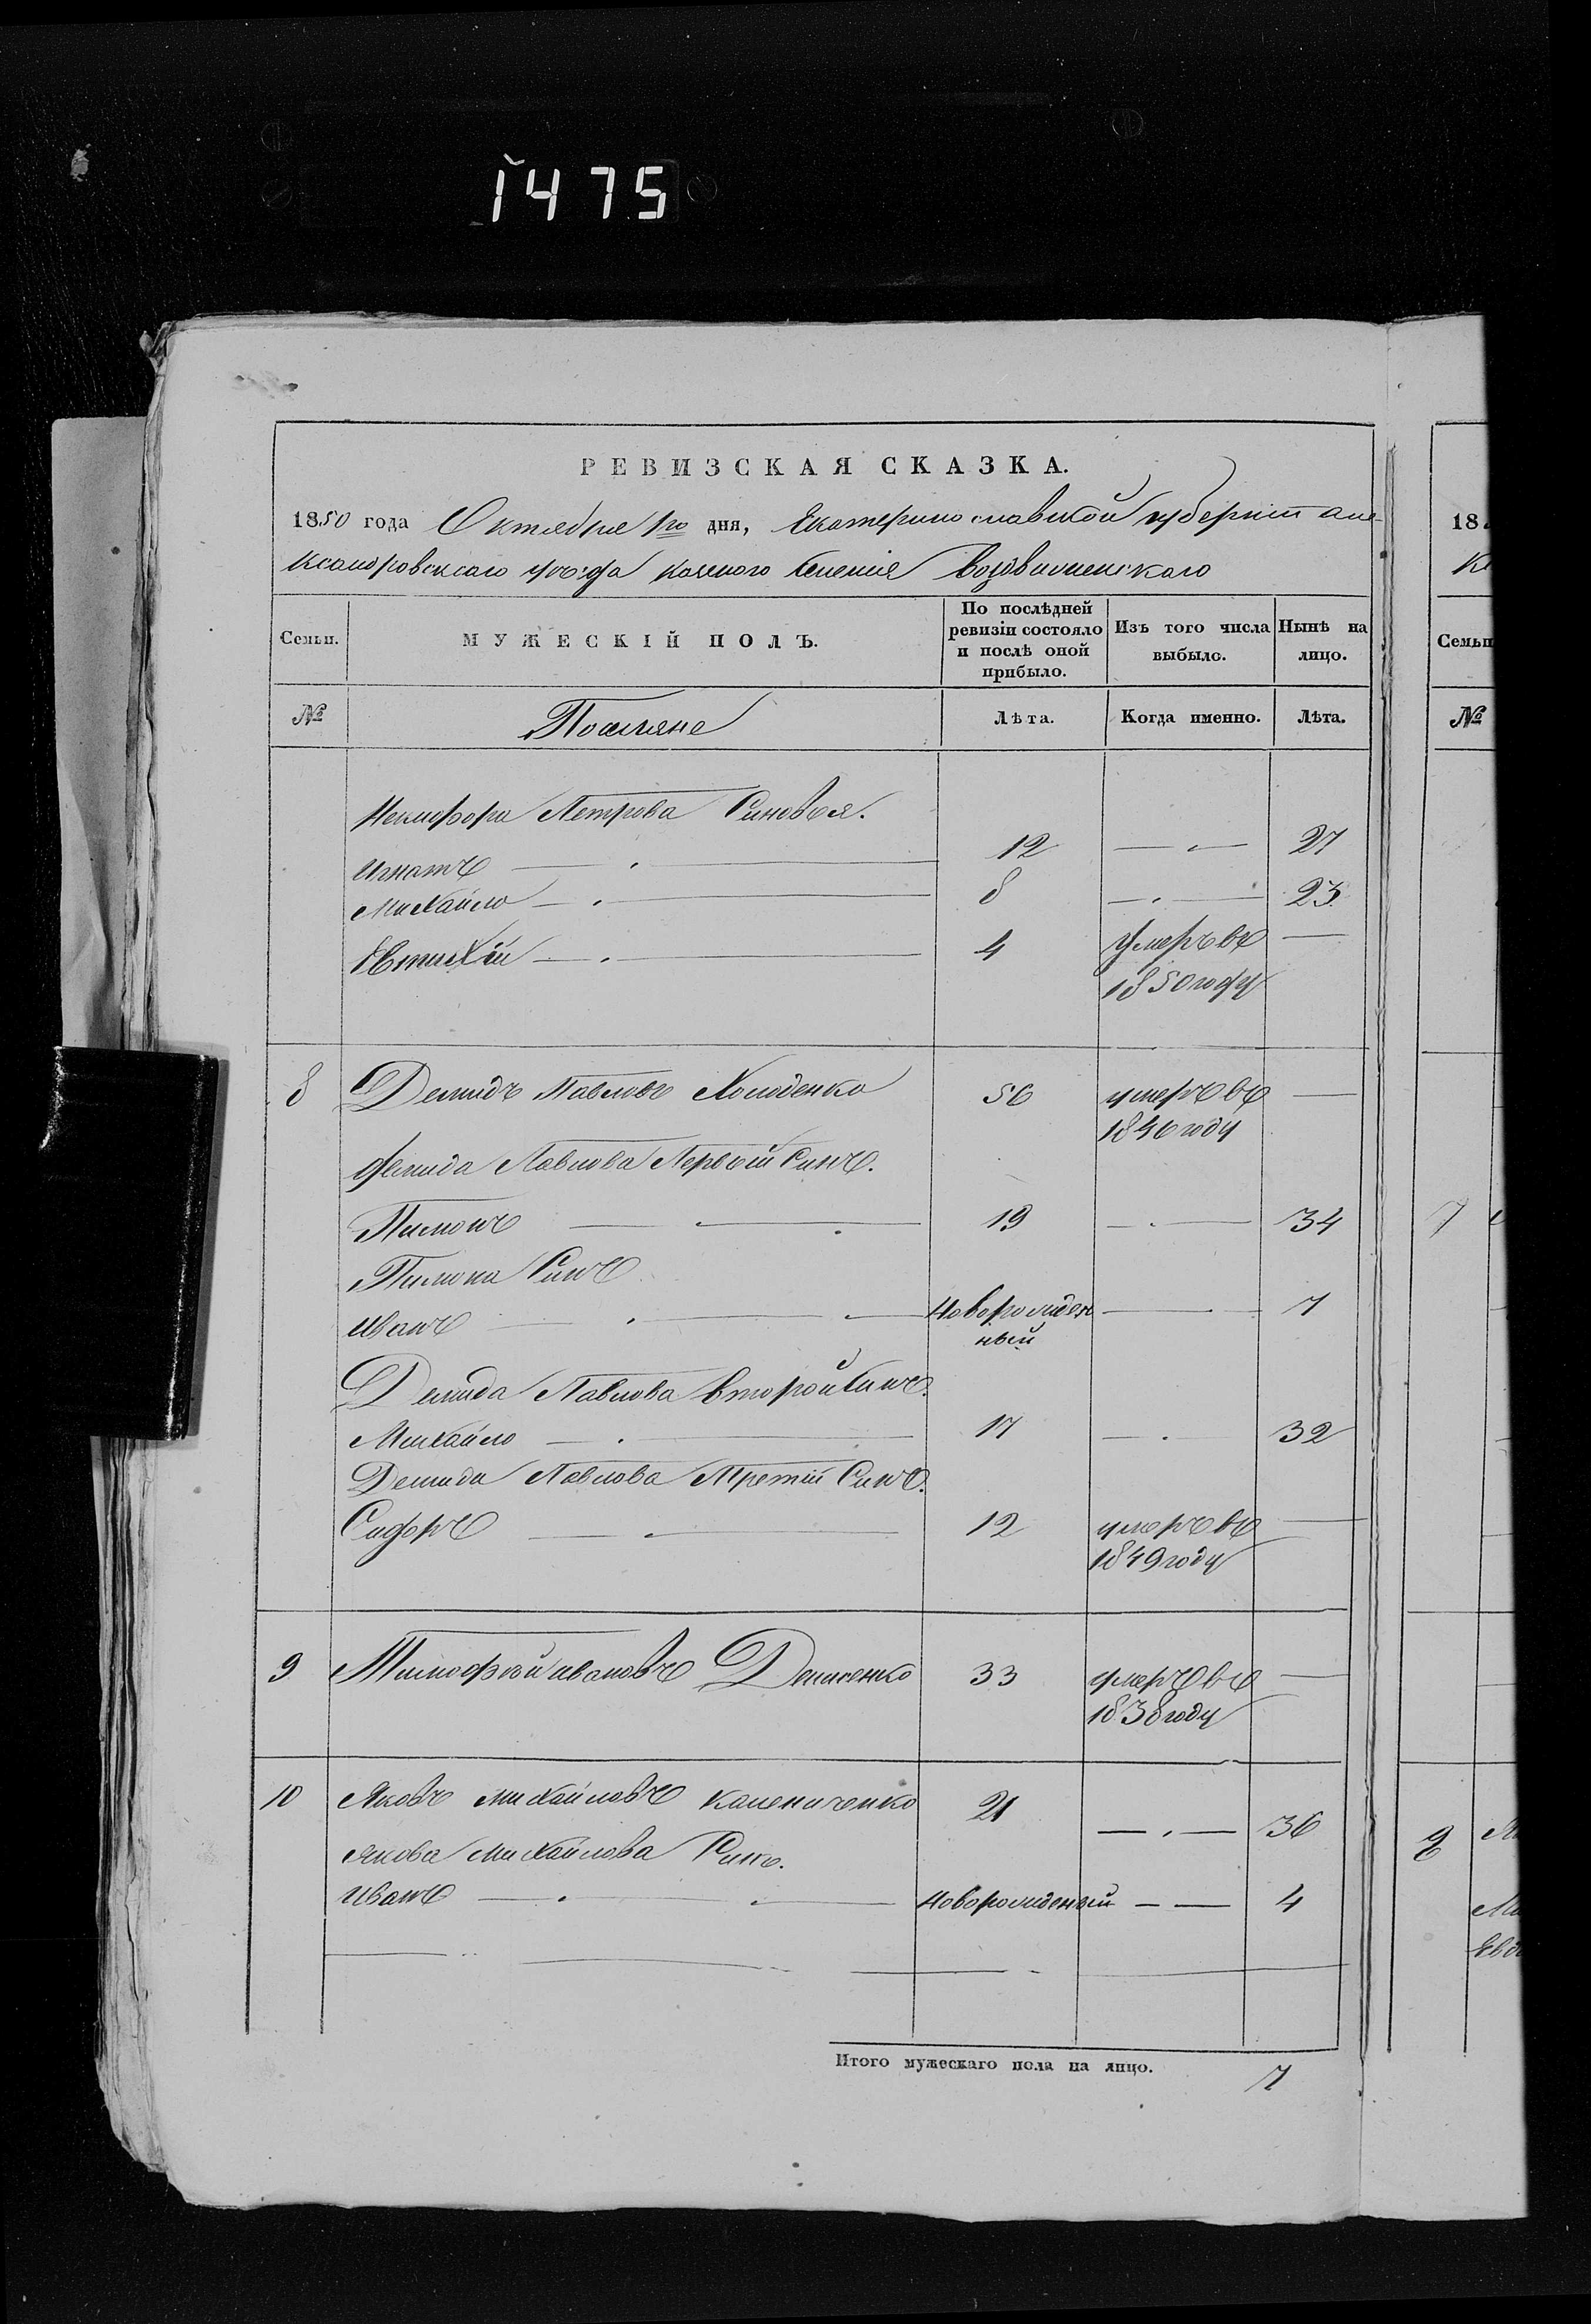 1475
РЕВИЗСКАЯ СКАЗКА.
1850 года Октября 1го дня, Екатеринославской губернiи але-
ксандровскаго уѣзда казеного селенiя Воздвиженскаго
Семьи. МУЖЕСКІЙ ПОЛЪ. По послѣдней ревизіи состояло и послѣ оной прибыло. Изъ того числа выбыло. Нынѣ на лицо.
№ Поселяне Лѣта. Когда именно. Лѣта.
Некифора Петрова Синовья.
Игнатъ — 12 — 27
Михайло — 8 — 23
Евтихiй — 4 Умеръ въ —
1850 году
8 Демидъ Павловъ Холоденко 56 умеръ въ —
1846 году
Демида Павлова Первый Синъ.
Пимонъ — 19 — 34
Пимона Синъ
Иванъ — Новорожден — 7
ный
Демида Павлова второй Синъ.
Михайло — 17 — 32
Демида Павлова Третiй Синъ.
Сидоръ — 12 умеръ въ —
1849 году
9 Тимофѣй ивановъ Денисенко 33 умеръ въ —
1838 году
10 Яковъ михайловъ калениченко 21 — 36
якова михайлова Синъ.
Иванъ — Новорожденый — 4
Итого мужескаго пола на лицо. 7
18
Семьи
№
7
8